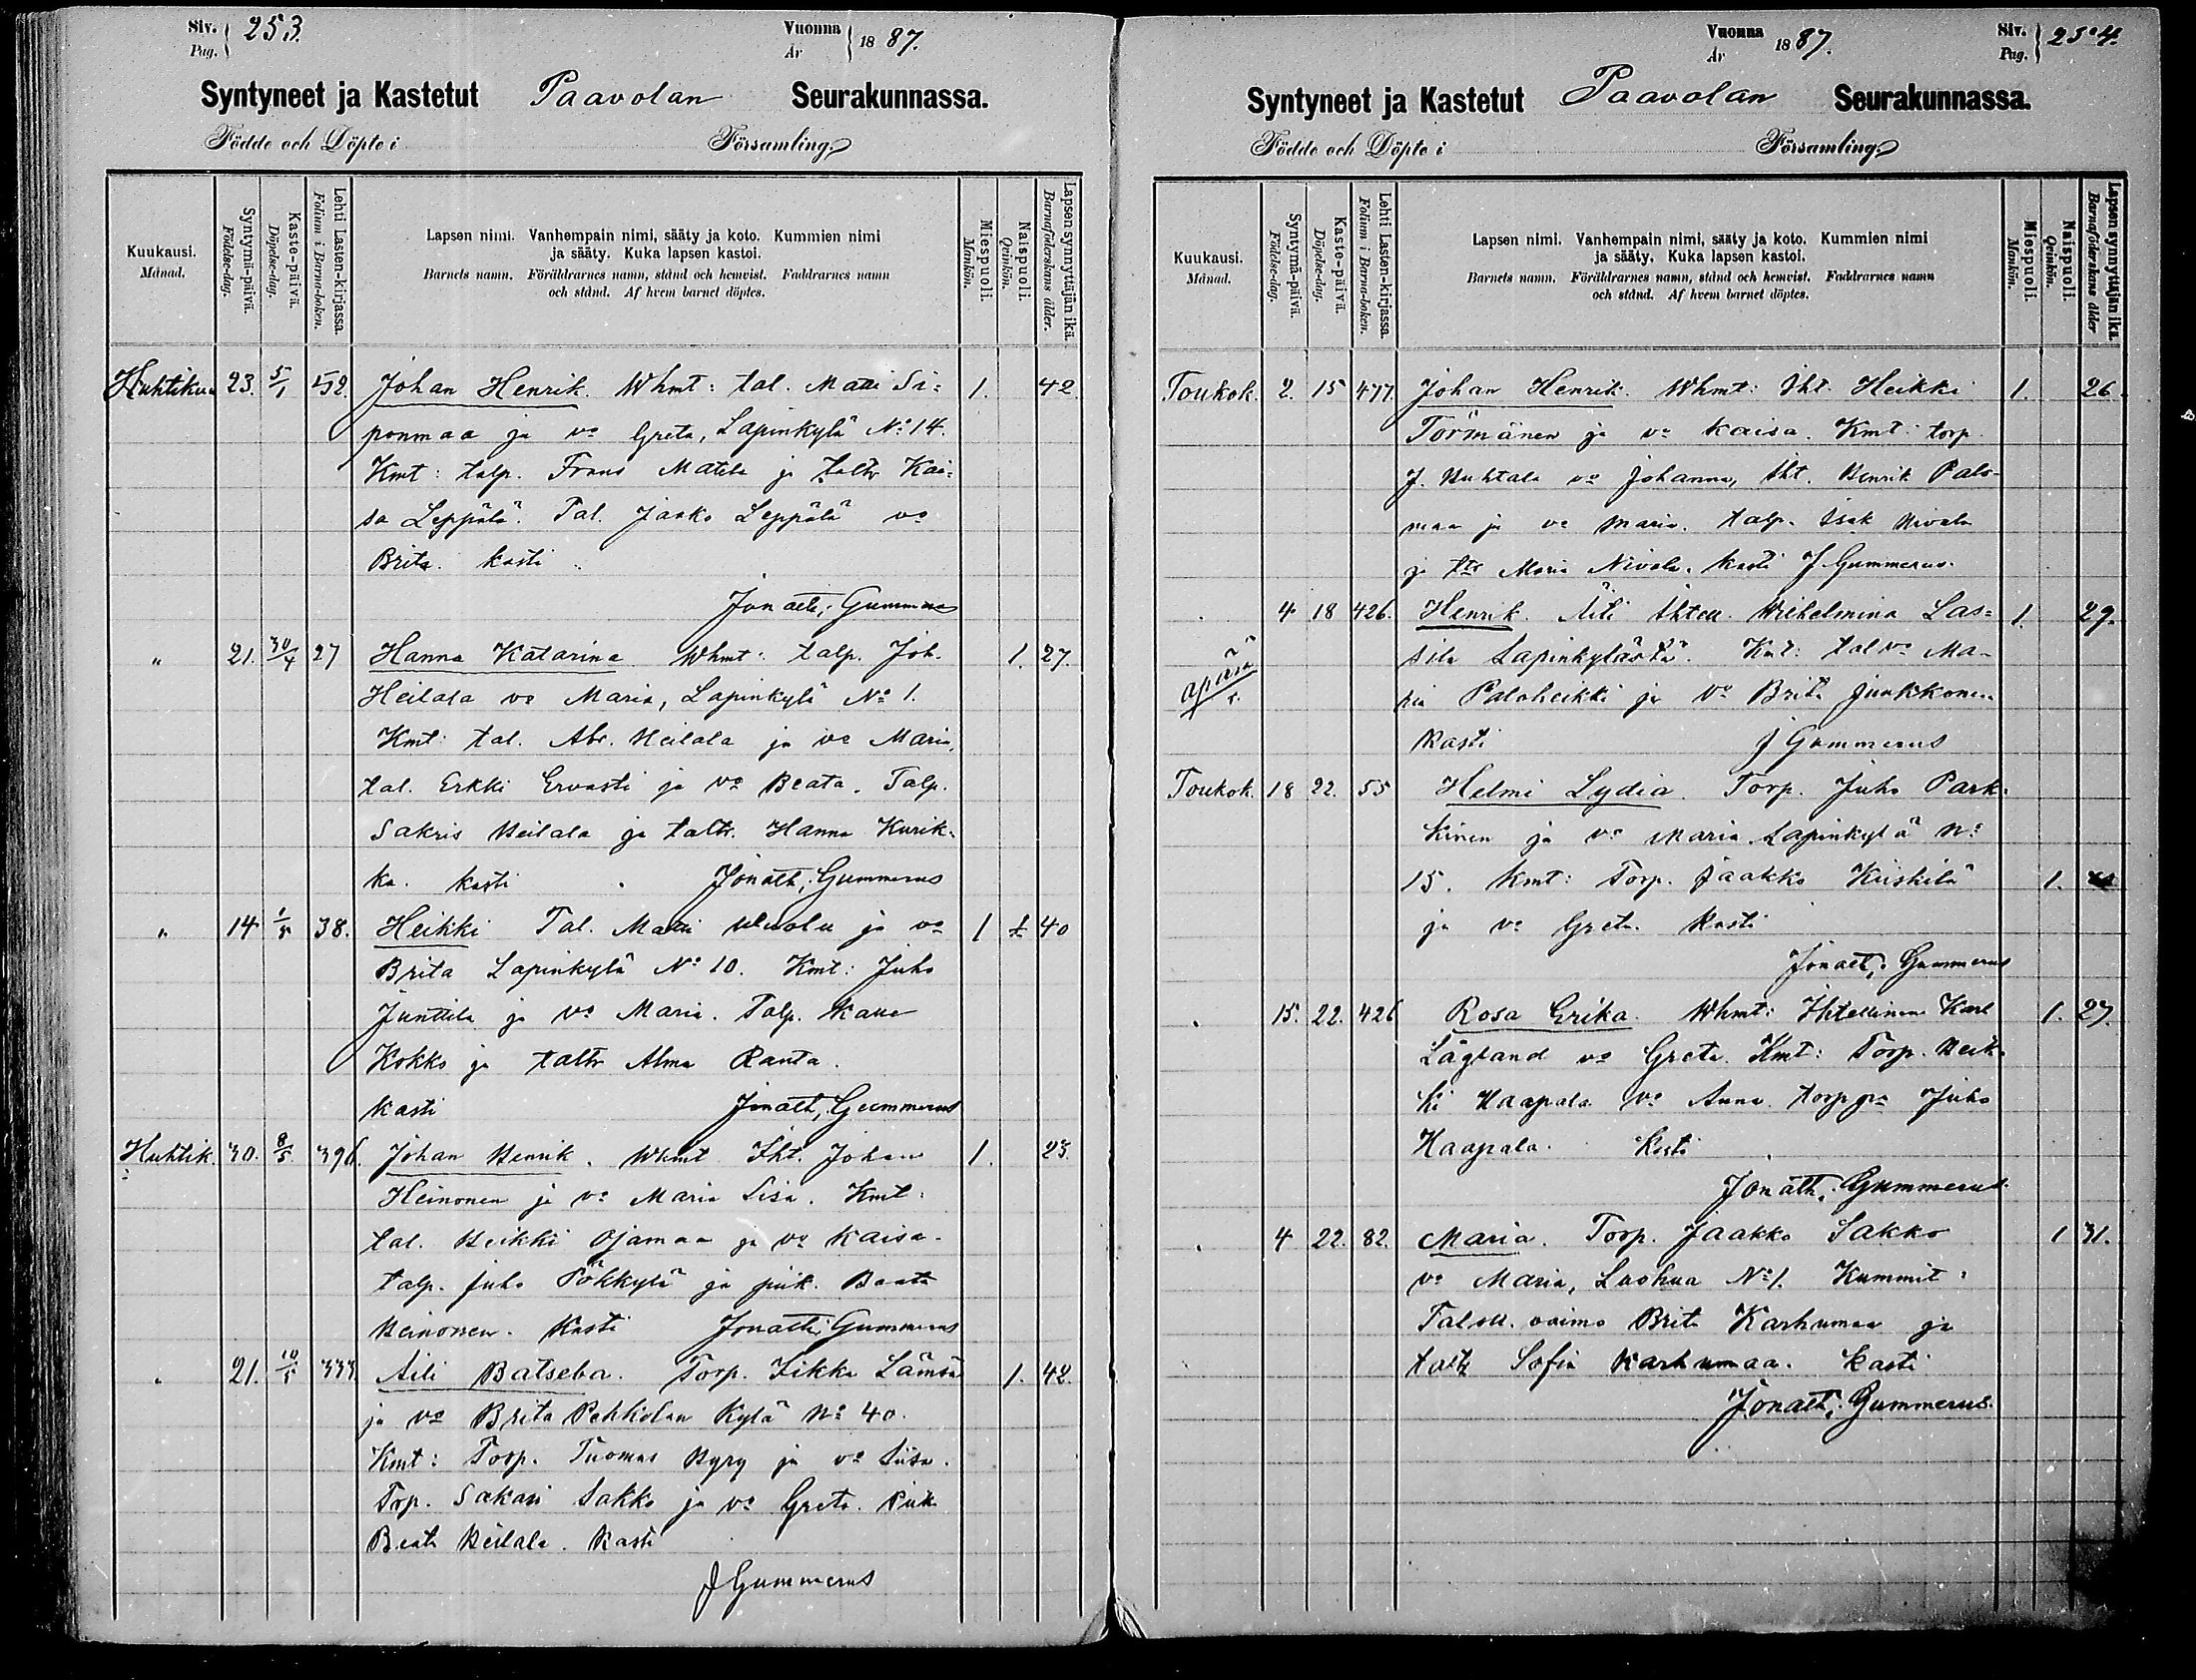 Siv. Pag. 253.
Vuonna År 1887.
Syntyneet ja Kastetut Paavolan Seurakunnassa.
Födde och Döpte i Församling.
Kuukausi. Månad.
Syntymä-päivä. Födelse-dag.
Kaste-päivä. Döpelse-dag.
Lehti Lasten-kirjassa. Folium i Barna-boken.
Lapsen nimi. Vanhempain nimi, sääty ja koto. Kummien nimi
ja sääty. Kuka lapsen kastoi.
Barnets namn. Föräldrarnes namn, stånd och hemvist. Faddrarnes namn
och stånd. Af hvem barnet döptes.
Miespuoli. Mankön.
Naispuoli. Qvinkön.
Lapsen synnyttäjän ikä. Barnaföderskans ålder.
Huhtikuu 23. 5/1 52. Johan Henrik. Whmt: tal. Matti Si= 1. 42
ponmaa ja vo Greta, Lapinkylä No 14.
Kmt: talp. Frans Matila ja taltr Kai=
sa Leppälä. Tal. Jaako Leppälä vo
Brita. kasti
Jonath. Gummerus
" 21. 30/4 27 Hanna Katarina Whmt: talp. Joh. 1. 27.
Heilala vo Maria, Lapinkylä No 1.
Kmt: tal. Abr. Heilala ja vo Maria,
tal. Erkki Ervasti ja vo Beata. Talp.
Sakris Heilala ja taltr. Hanna Kurik-
ka. kasti Jonath. Gummerus
" 14 1/5 38. Heikki Tal. Matti ja vo 1 1 40
Brita Lapinkylä No 10. Kmt: Juho
Junttila ja vo Maria. Talp.
Kokko ja taltr Alma Ranta.
kasti Jonath. Gummerus
Huhtik. 30. 8/5. 396. Johan Henrik. Whmt Iht. Johan 1. 23
Heinonen ja vo Maria Lisa. Kmt:
tal. Heikki Ojamaa ja vo Kaisa.
talp. Juho Pökkylä ja piik. Beata
Heinonen. Kasti Jonath. Gummerus
" 21. 10/5 333 Aili Batseba. Torp. Iikka Lämsä 1. 42.
ja vo Brita Pehkolan Kylä No 40.
Kmt: Torp. Tuomas Hyry ja vo Liisa.
Trp. Sakari Sakko ja vo Greta. Piik
Beata Heilala. Kasti
J Gummerus
Vuonna År 1887.
Siv. Pag. 254.
Syntyneet ja Kastetut Paavolan Seurakunnassa.
Födde och Döpte i Församling.
Kuukausi. Månad.
Syntymä-päivä. Födelse-dag.
Kaste-päivä. Döpelse-dag.
Lehti Lasten-kirjassa. Folium i Barna-boken.
Lapsen nimi. Vanhempain nimi, sääty ja koto. Kummien nimi
ja sääty. Kuka lapsen kastoi.
Barnets namn. Föräldrarnes namn, stånd och hemvist. Faddrarnes namn
och stånd. Af hvem barnet döptes.
Miespuoli. Mankön.
Naispuoli. Qvinkön.
Lapsen synnyttäjän ikä. Barnaföderskans ålder
Toukok. 2. 15 477. Johan Henrik. Whmt: Iht. Heikki 1. 26.
Törmänen ja vo Kaisa. Kmt: torp.
J. Huhtala vo Johanna, iht. Henrik Palo-
maa ja vo Maria. talp. Isak Nivala
ja Maria Nivala. kasti J Gummerus.
4 18 426. Henrik. Äiti Wilhelmina Las= 1. 29.
äpärä
sila Lapinkylästä. Kmt: tal vo Ma-
ria Paloheikki ja vo Brita Junkkonen
kasti J Gummerus
Toukok. 18 22. 55 Helmi Lydia. Torp. Juho Park-
kinen ja vo Maria Lapinkylä No
15. Kmt: Torp. Jaakko Kiiskilä 1.
ja vo Greta. Kasti
Jonath. Gummerus
" 15. 22. 426 Rosa Erika. Whmt: Ihtellinen Karl 1. 27.
Lågland vo Greta. Kmt: Torp. Heik-
ki Haapala vo Anna. Juho
Haapala. Kasti
Jonath. Gummerus.
" 4 22. 82. Maria. Torp. Jaakko Sakko 1 31.
vo Maria, Luohua No 1. Kummit:
vaimo Brita Karhumaa ja
Sofia Karhumaa. kasti
Jonath. Gummerus.